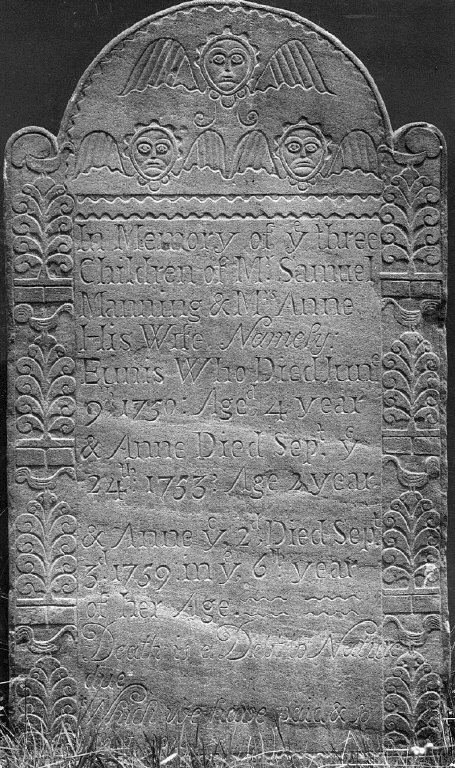 In Memory of yᵉ three
Children of Mʳ. Samuel
Manning & Mʳˢ. Anne
His Wife. Namely.
Eunis Who Died Junᵉ
9ᵗʰ 1750: Ageᵈ 4 year
& Anne Died Sepᵗ. yᵉ
24ᵗʰ. 1753: Age 2 year
& Anne yᵉ 2ᵈ. Died Sepᵗ
3ᵈ. 1759 in yᵉ. 6ᵗʰ year
of her Age.
Death is a Debt to Nature
due
Which we have paid & so